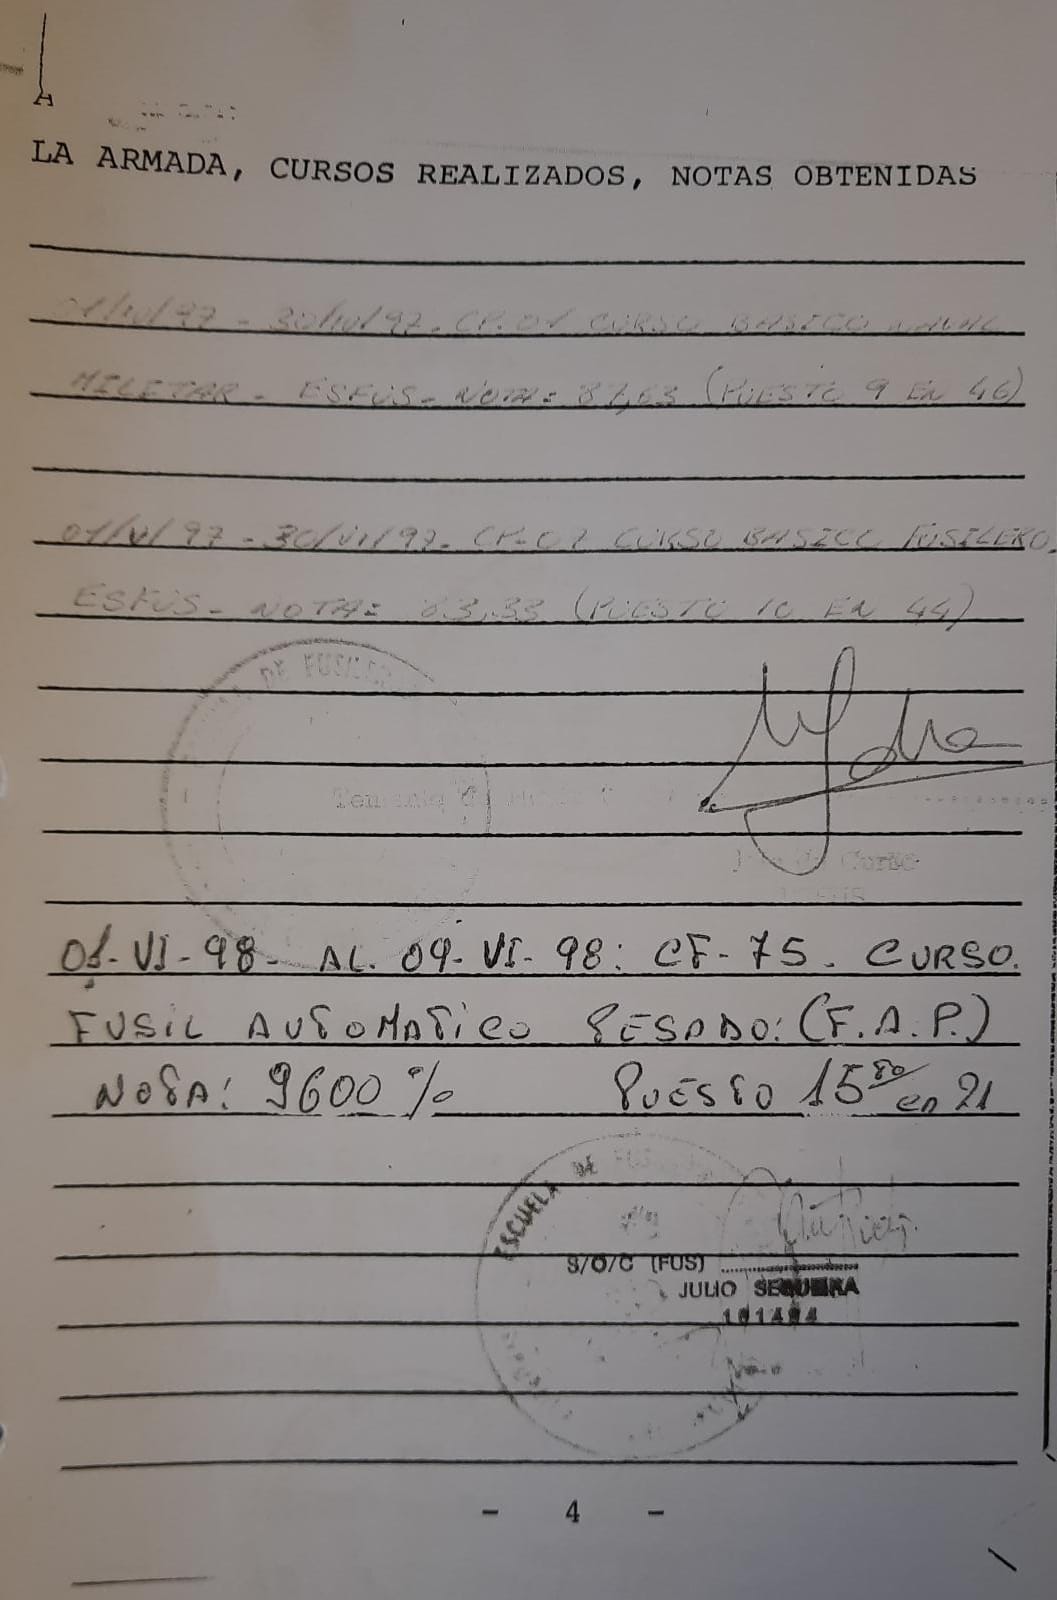 LA ARMADA, CURSOS REALIZADOS, NOTAS OBTENIDAS
01/IV/97 - 30/IV/97. CP.01 CURSO BASICO
MILITAR - ESFUS - NOTA: 87,63 (PUESTO 9 EN 46)
01/V/97 - 30/VI/97. CP-02 CURSO BASICO FUSILERO.
ESFUS - NOTA: 83,33 (PUESTO 10 EN 44)
DE FUSILEROS
Teniente de
Curso
01-VI-98- AL. 09-VI-98: CF-75. CURSO.
FUSIL AUTOMATICO PESADO: (F.A.P.)
NOTA: 9600 % PUESTO 15TO en 21
ESCUELA DE FUS
S/O/C (FUS)
JULIO SEQUERA
- 4 -